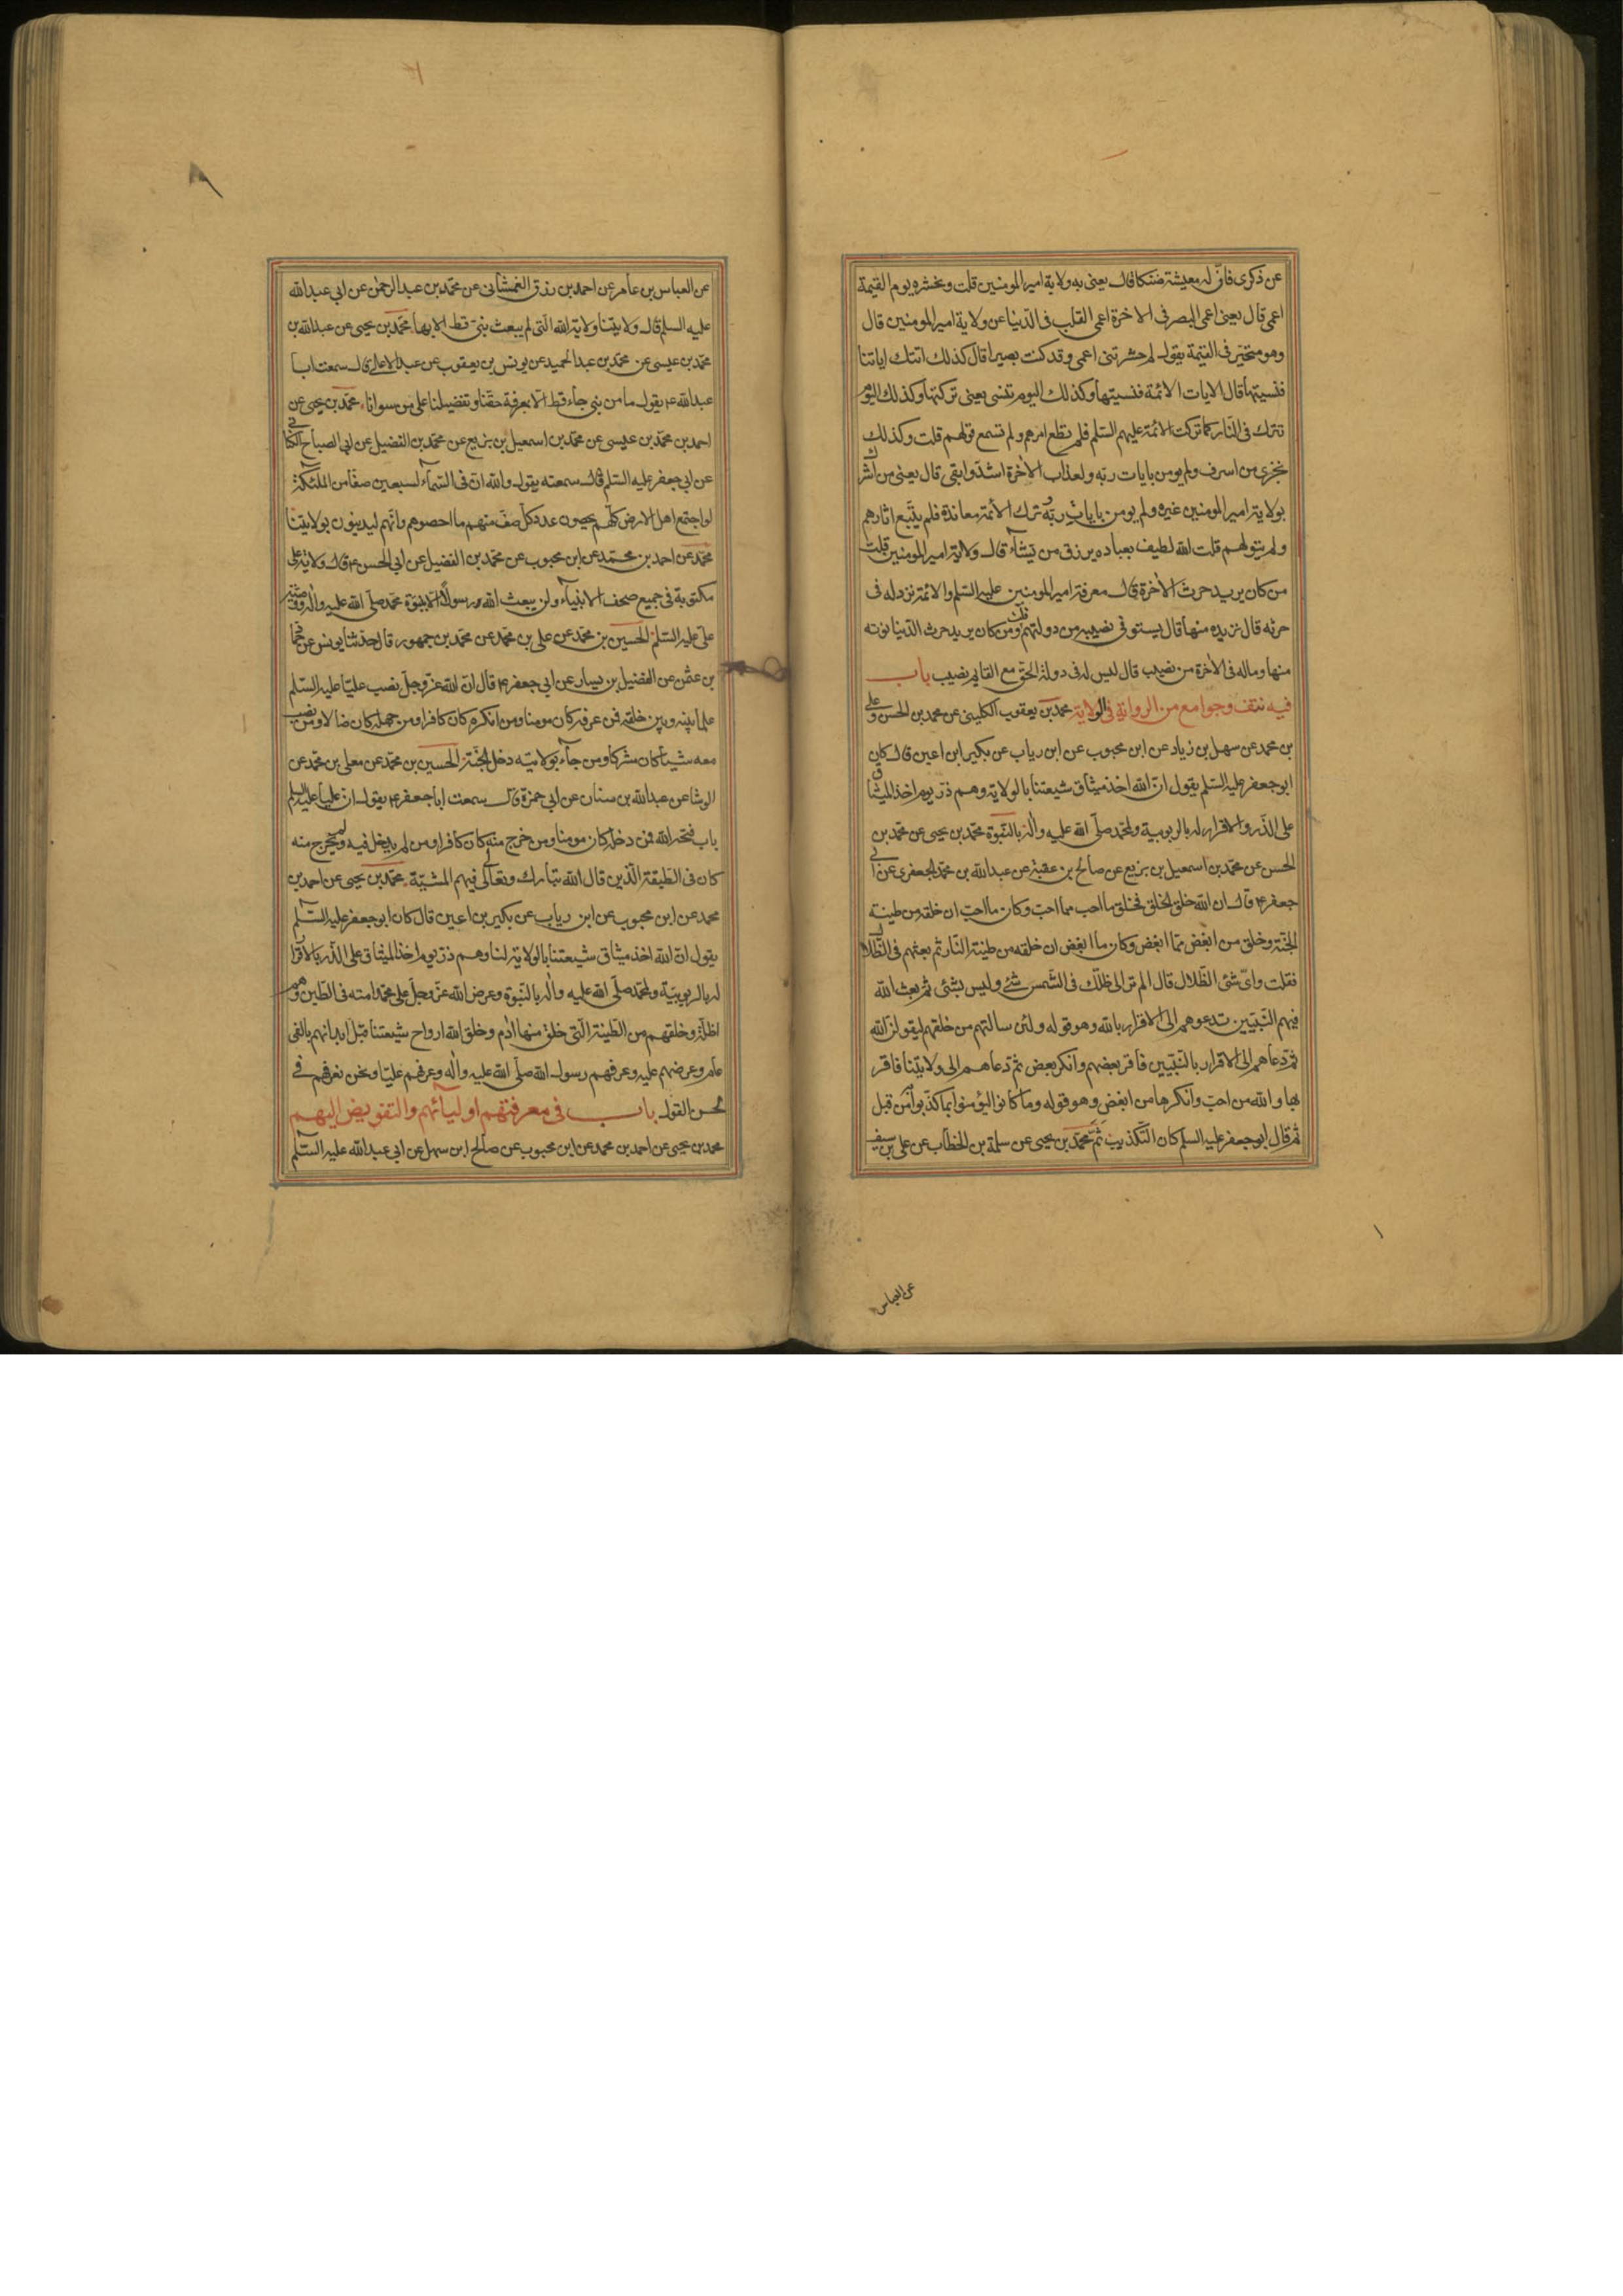 عن ذكرى فانّ له معيشة ضنكا قال يعنى به ولاية امير المومنين قلت ونحشره يوم القيمة
اعمى قال يعنى اعمى البصر فى الاخرة اعمى القلب فى الدّنيا عن ولاية امير المومنين قال
وهو متحيّر فى القيمة يقول لم حشرتنى اعمى وقد كنت بصيرا قال كذلك اتتك اياتنا
فنسيتها قال الايات الائمة فنسيتها وكذلك اليوم تنسى يعنى تركتها وكذلك اليوم
تترك فى النّار كما تركت الائمّة عليهم السّلم فلم تطع امرهم ولم تسمع قولهم قلت وكذلك
نجزى من اسرف ولم يومن بايات ربّه ولعذاب الاخرة اشدّ وابقى قال يعنى من اشرك
بولاية امير المومنين غيره ولم يومن بايات ربّه ترك الائمّة معاندة فلم يتّبع اثارهم
ولم يتولهم قلت الله لطيف بعباده يرزق من يشآء قال ولاية امير المومنين قلت
من كان يريد حرث الاخرة قال معرفة امير المومنين عليه السّلم والائمّة نزد له فى
حرثه قال نزيده منها قال يستوفى نصيبه من دولتهم قلت ومن كان يريد حرث الدّنيا نوته
منها وماله فى الاخرة من نصيب قال ليس له فى دولة الحق مع القايم نصيب باب
فيه نتف وجوامع من الرواية فى الولاية محمّد بن يعقوب الكلينى عن محمد بن الحسن وعلى
بن محمد عن سهل بن زياد عن ابن محبوب عن ابن رياب عن بكير ابن اعين قال كان
ابو جعفر عليه السّلم يقول انّ الله اخذ ميثاق شيعتنا بالولاية وهم ذرّ يوم اخذ الميثاق
على الذّر والاقرار له بالربوبية ولمحمّد صلّى الله عليه واله بالنّبوّة محمّد بن يحيى عن محمّد بن
الحسن عن محمّد بن اسمعيل بن بزيع عن صالح بن عقبة عن عبد الله بن محمّد الجعفرى عن ابى
جعفر ع قال ان الله خلق الخلق فخلق ما احب مما احبّ وكان ما احبّ ان خلقه من طينة
الجنّة وخلق من ابغض ممّا ابغض وكان ما ابغض ان خلقه من طينة النّار ثم بعثهم فى الظّلال
فقلت واىّ شئى الظّلال قال الم تر الى ظلّك فى الشّمس شئ وليس بشئى ثم بعث الله
فيهم النّبيّين تدعوهم الى الاقرار بالله وهو قوله ولئن سالتهم من خلقهم ليقولنّ الله
ثمّ دعاهم الى الاقرار بالنّبيّين فاقر بعضهم وانكر بعض ثمّ دعاهم الى ولايتنا فاقر
بها والله من احبّ وانكرها من ابغض وهو قوله وما كانوا ليؤمنوا بما كذّبوا من قبل
ثم قال ابو جعفر عليه السلم كان التّكذيب ثمّ محمّد بن يحيى عن سلمة بن الخطّاب عن على بن سيف
عن العباس
عن العباس بن عامر عن احمد بن رزق الغمشانى عن محمّد بن عبد الرحمن عن ابى عبد الله
عليه السلم قال ولايتنا ولاية الله الّتى لم يبعث نبىّ قط الا بها محمّد بن يحيى عن عبد الله بن
محمّد بن عيسى عن محمّد بن عبد الحميد عن يونس بن يعقوب عن عبد الاعلى قال سمعت ابا
عبد الله ع يقول ما من نبى جاء قط الا بمعرفة حقّنا وتفضيلنا على من سوانا محمّد بن يحيى عن
احمد بن محمّد بن عيسى عن محمّد بن اسمعيل بن بزيع عن محمّد بن الفضيل عن ابى الصباح الكنانى
عن ابى جعفر عليه السّلم قال سمعته يقول والله انّ فى السّمآء لسبعين صفّا من الملئكة
لو اجتمع اهل الارض كلّهم يحصون عدد كلّ صفّ منهم ما احصوهم وانّهم ليدينون بولايتنا
محمّد عن احمد بن محمّد عن ابن محبوب عن محمّد بن الفضيل عن ابى الحسن ع قال ولاية على
مكتوبة فى جميع صحف الانبيآء ولن يبعث الله رسولا الا بنبوّة محمّد صلّى الله عليه واله ووصيّة
علىّ عليه السّلم الحسين بن محمّد عن على بن محمّد عن محمّد بن جمهور قال حدثنا يونس عن حماد
بن عثمن عن الفضيل بن يسار عن ابى جعفر ع قال انّ الله عزّ وجلّ نصب عليّا عليه السّلم
علما بينه وبين خلقه فمن عرفه كان مومنا ومن انكره كان كافرا ومن جهله كان ضالا ومن نصب
معه شيئا كان مشركا ومن جآء بولايته دخل الجنّة الحسين بن محمّد عن معلى بن محمّد عن
الوشا عن عبد الله بن سنان عن ابى حمزة قال سمعت ابا جعفر ع يقول ان عليا عليه السلم
باب فتحه الله فمن دخله كان مومنا ومن خرج منه كان كافرا ومن لم يدخل فيه ولم يخرج منه
كان فى الطبقة الّذين قال الله تبارك وتعالى فيهم المشيّة محمّد بن يحيى عن احمد بن
محمد عن ابن محبوب عن ابن رياب عن بكير بن اعين قال كان ابو جعفر عليه السّلم
يقول انّ الله اخذ ميثاق شيعتنا بالولاية لنا وهم ذرّ يوم اخذ الميثاق على الذّر بالاقرار
له بالربوبيّة ولمحمّد صلّى الله عليه واله بالنّبوة وعرض الله عزّ وجلّ على محمّد امته فى الطّين وهم
اظلّة وخلقهم من الطّينة الّتى خلق منها ادم وخلق الله ارواح شيعتنا قبل ابدانهم بالفى
عام وعرضهم عليه وعرفهم رسول الله صلّى الله عليه واله وعرفهم عليّا ونحن نعرفهم فى
لحن القول باب فى معرفتهم اوليائهم والتفويض اليهم
محمد بن يحيى عن احمد بن محمد عن ابن محبوب عن صالح ابن سهل عن ابى عبد الله عليه السّلم